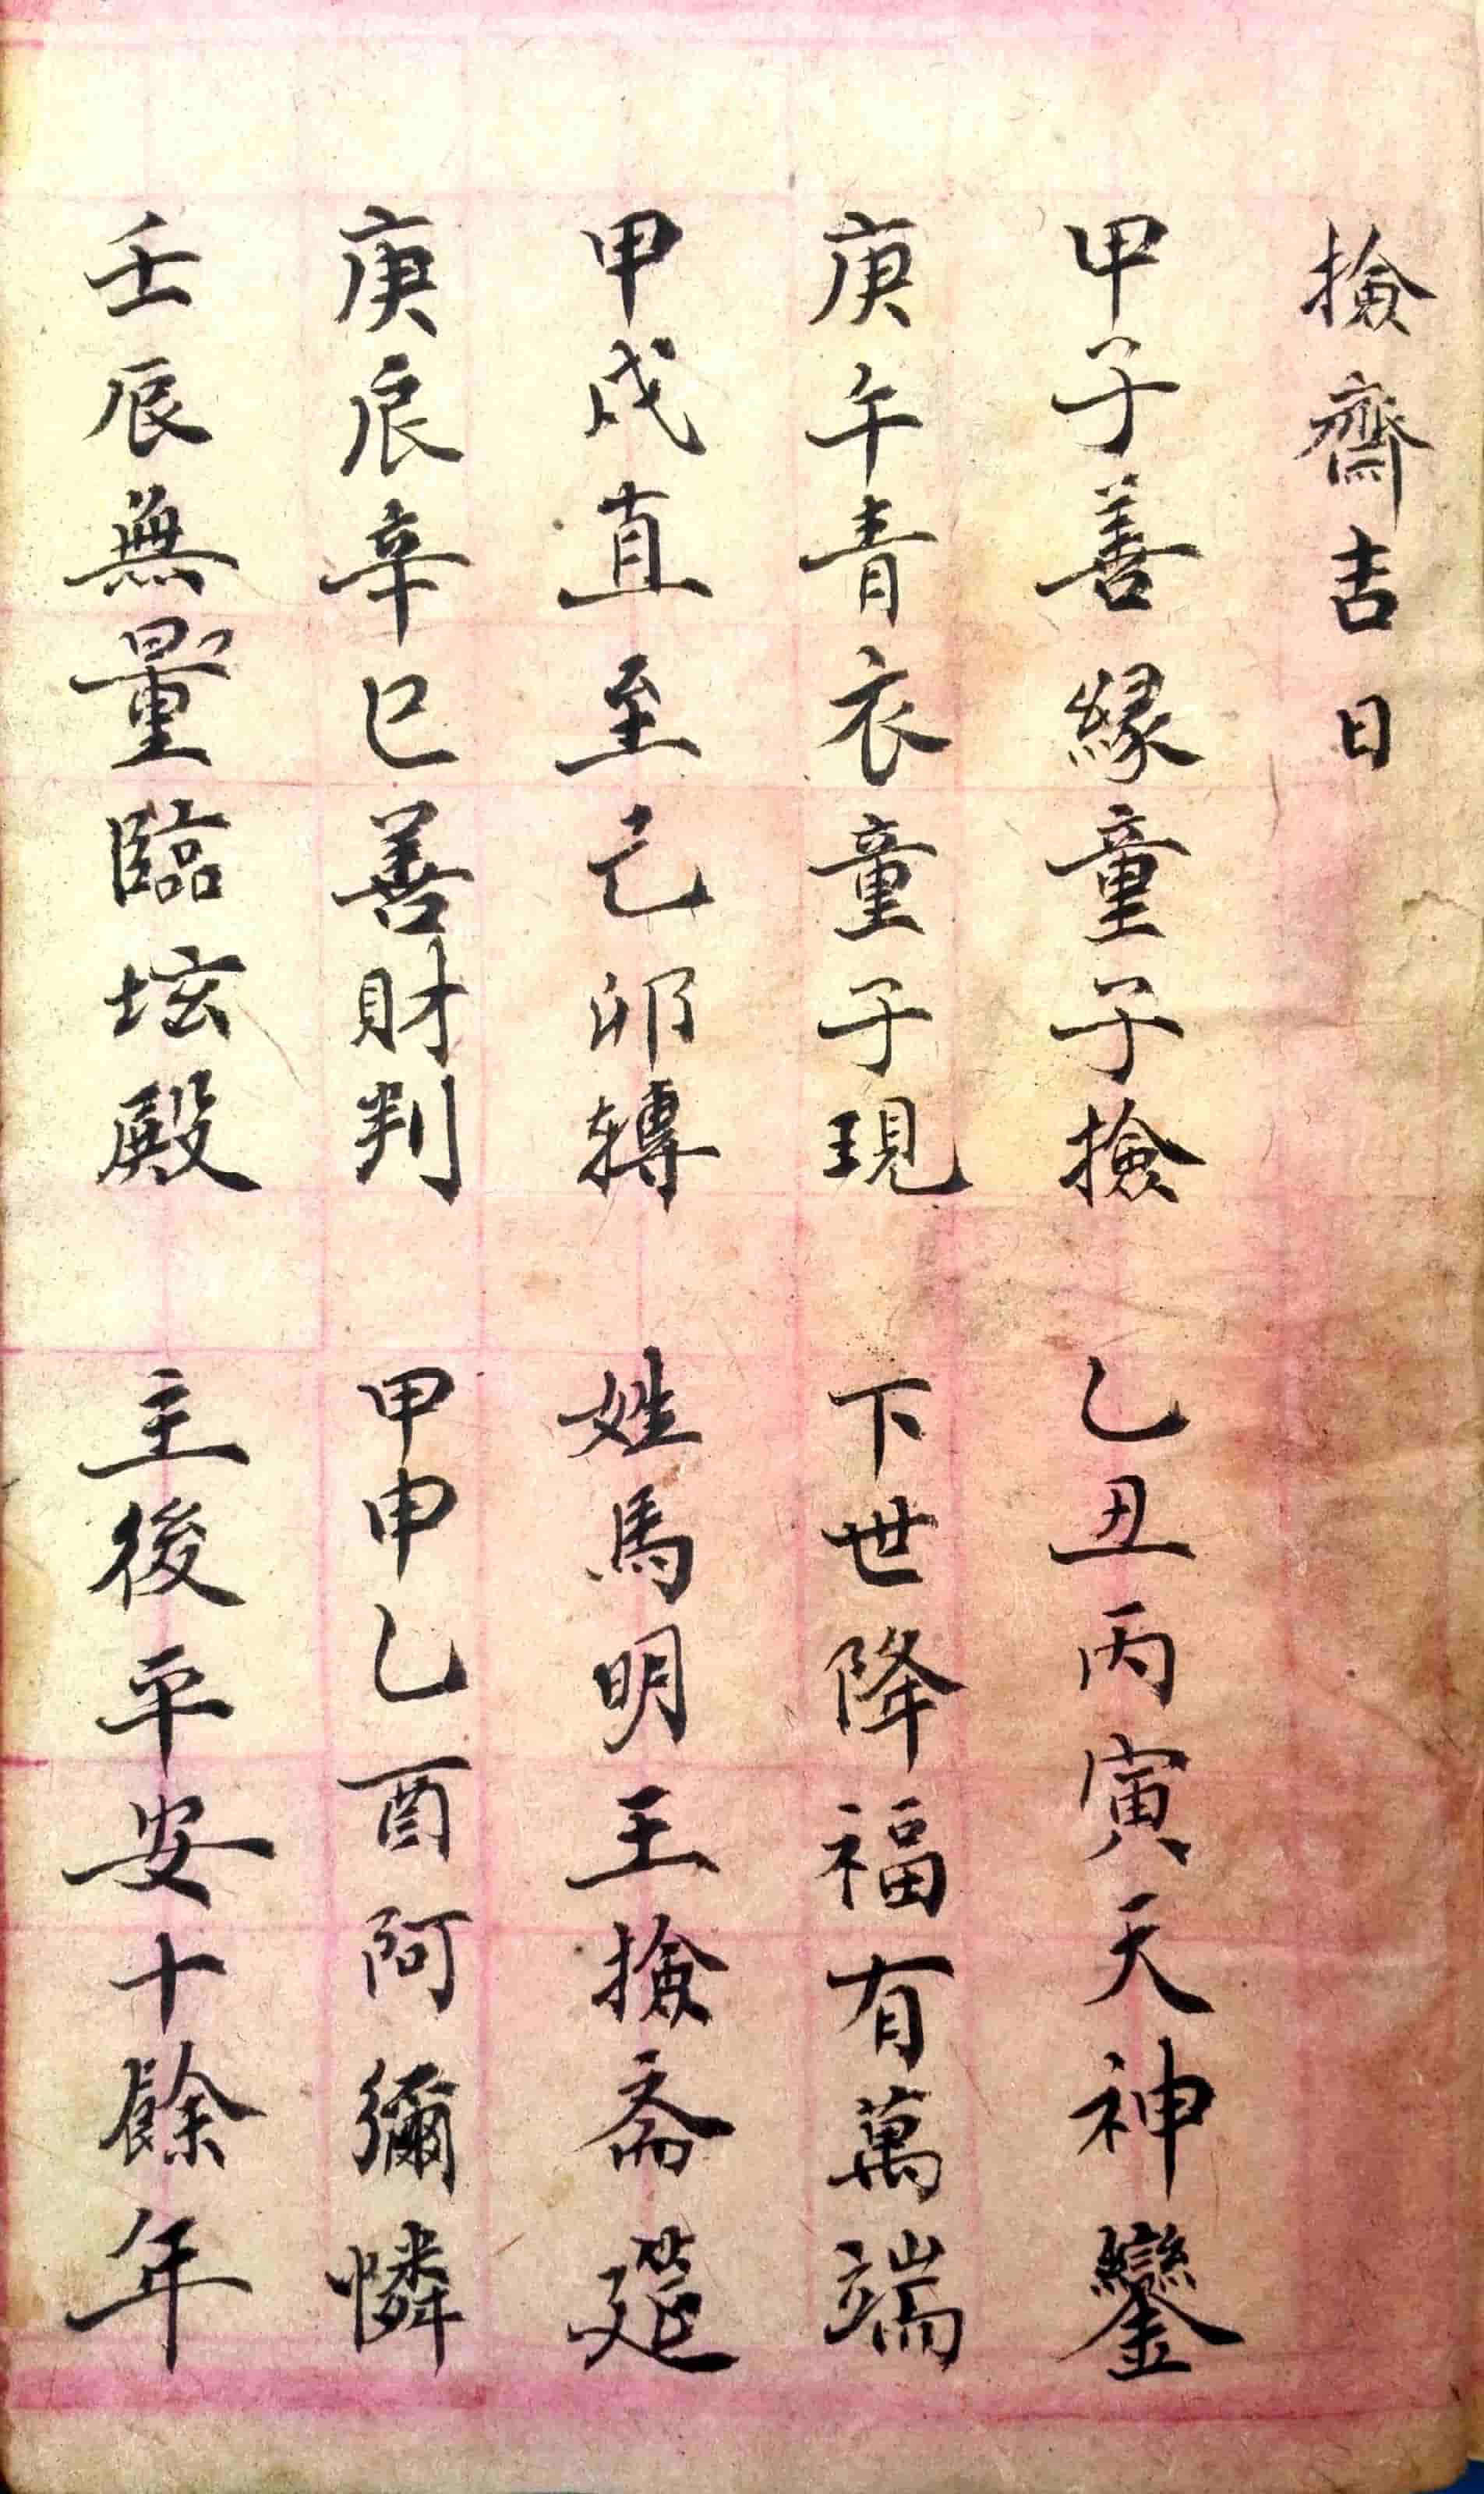 撿齋吉日
甲子善緣童子撿 乙丑丙寅天神鑾
庚午青衣童子現 下世降福有萬端
甲戌直至己卯轉 姓馬明王撿斋筵
庚辰辛巳善財判 甲申乙酉阿彌憐
壬辰無量臨坛殿 主後平安十餘年